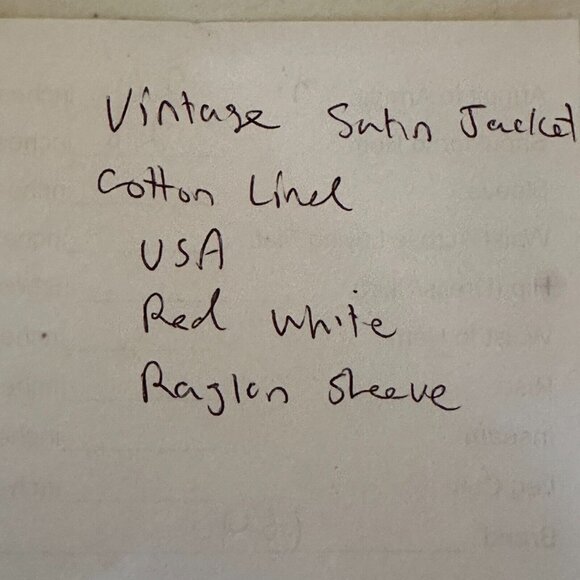 Vintage Satin Jacket
Cotton Lined
USA
Red White
Raglan Sleeve